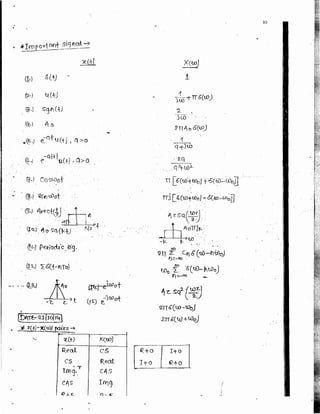 * Important signal →
x(t) X(ω)
(1.) δ(t) 1
(2.) u(t) 1/jω + πδ(ω)
(3.) sgn(t) 2/jω
(4.) A₀ 2πA₀δ(ω)
e^-at u(t), a>0 1/a+jω
e^-a|t| u(t), a>0 2a/a²+ω²
Cosω₀t π[δ(ω+ω₀)+δ(ω-ω₀)]
Sinω₀t πj[δ(ω+ω₀)-δ(ω-ω₀)]
A rect(t/τ) Aτ sa(ωτ/2)
A₀ sa(kt) A₀π/k
Periodic sig. 2π Σ Cn δ(ω-nω₀)
Σδ(t-nT₀) ω₀ Σ δ(ω-nω₀)
Aτ sa²(ωτ/2)
e^jω₀t 2πδ(ω-ω₀)
(15) e^-jω₀t 2πδ(ω+ω₀)
x(t)-X(ω) pairs →
x(t) X(ω)
Real CS
CS Real
Img. CAS
CAS Img
R+o I+o
I+o R+o